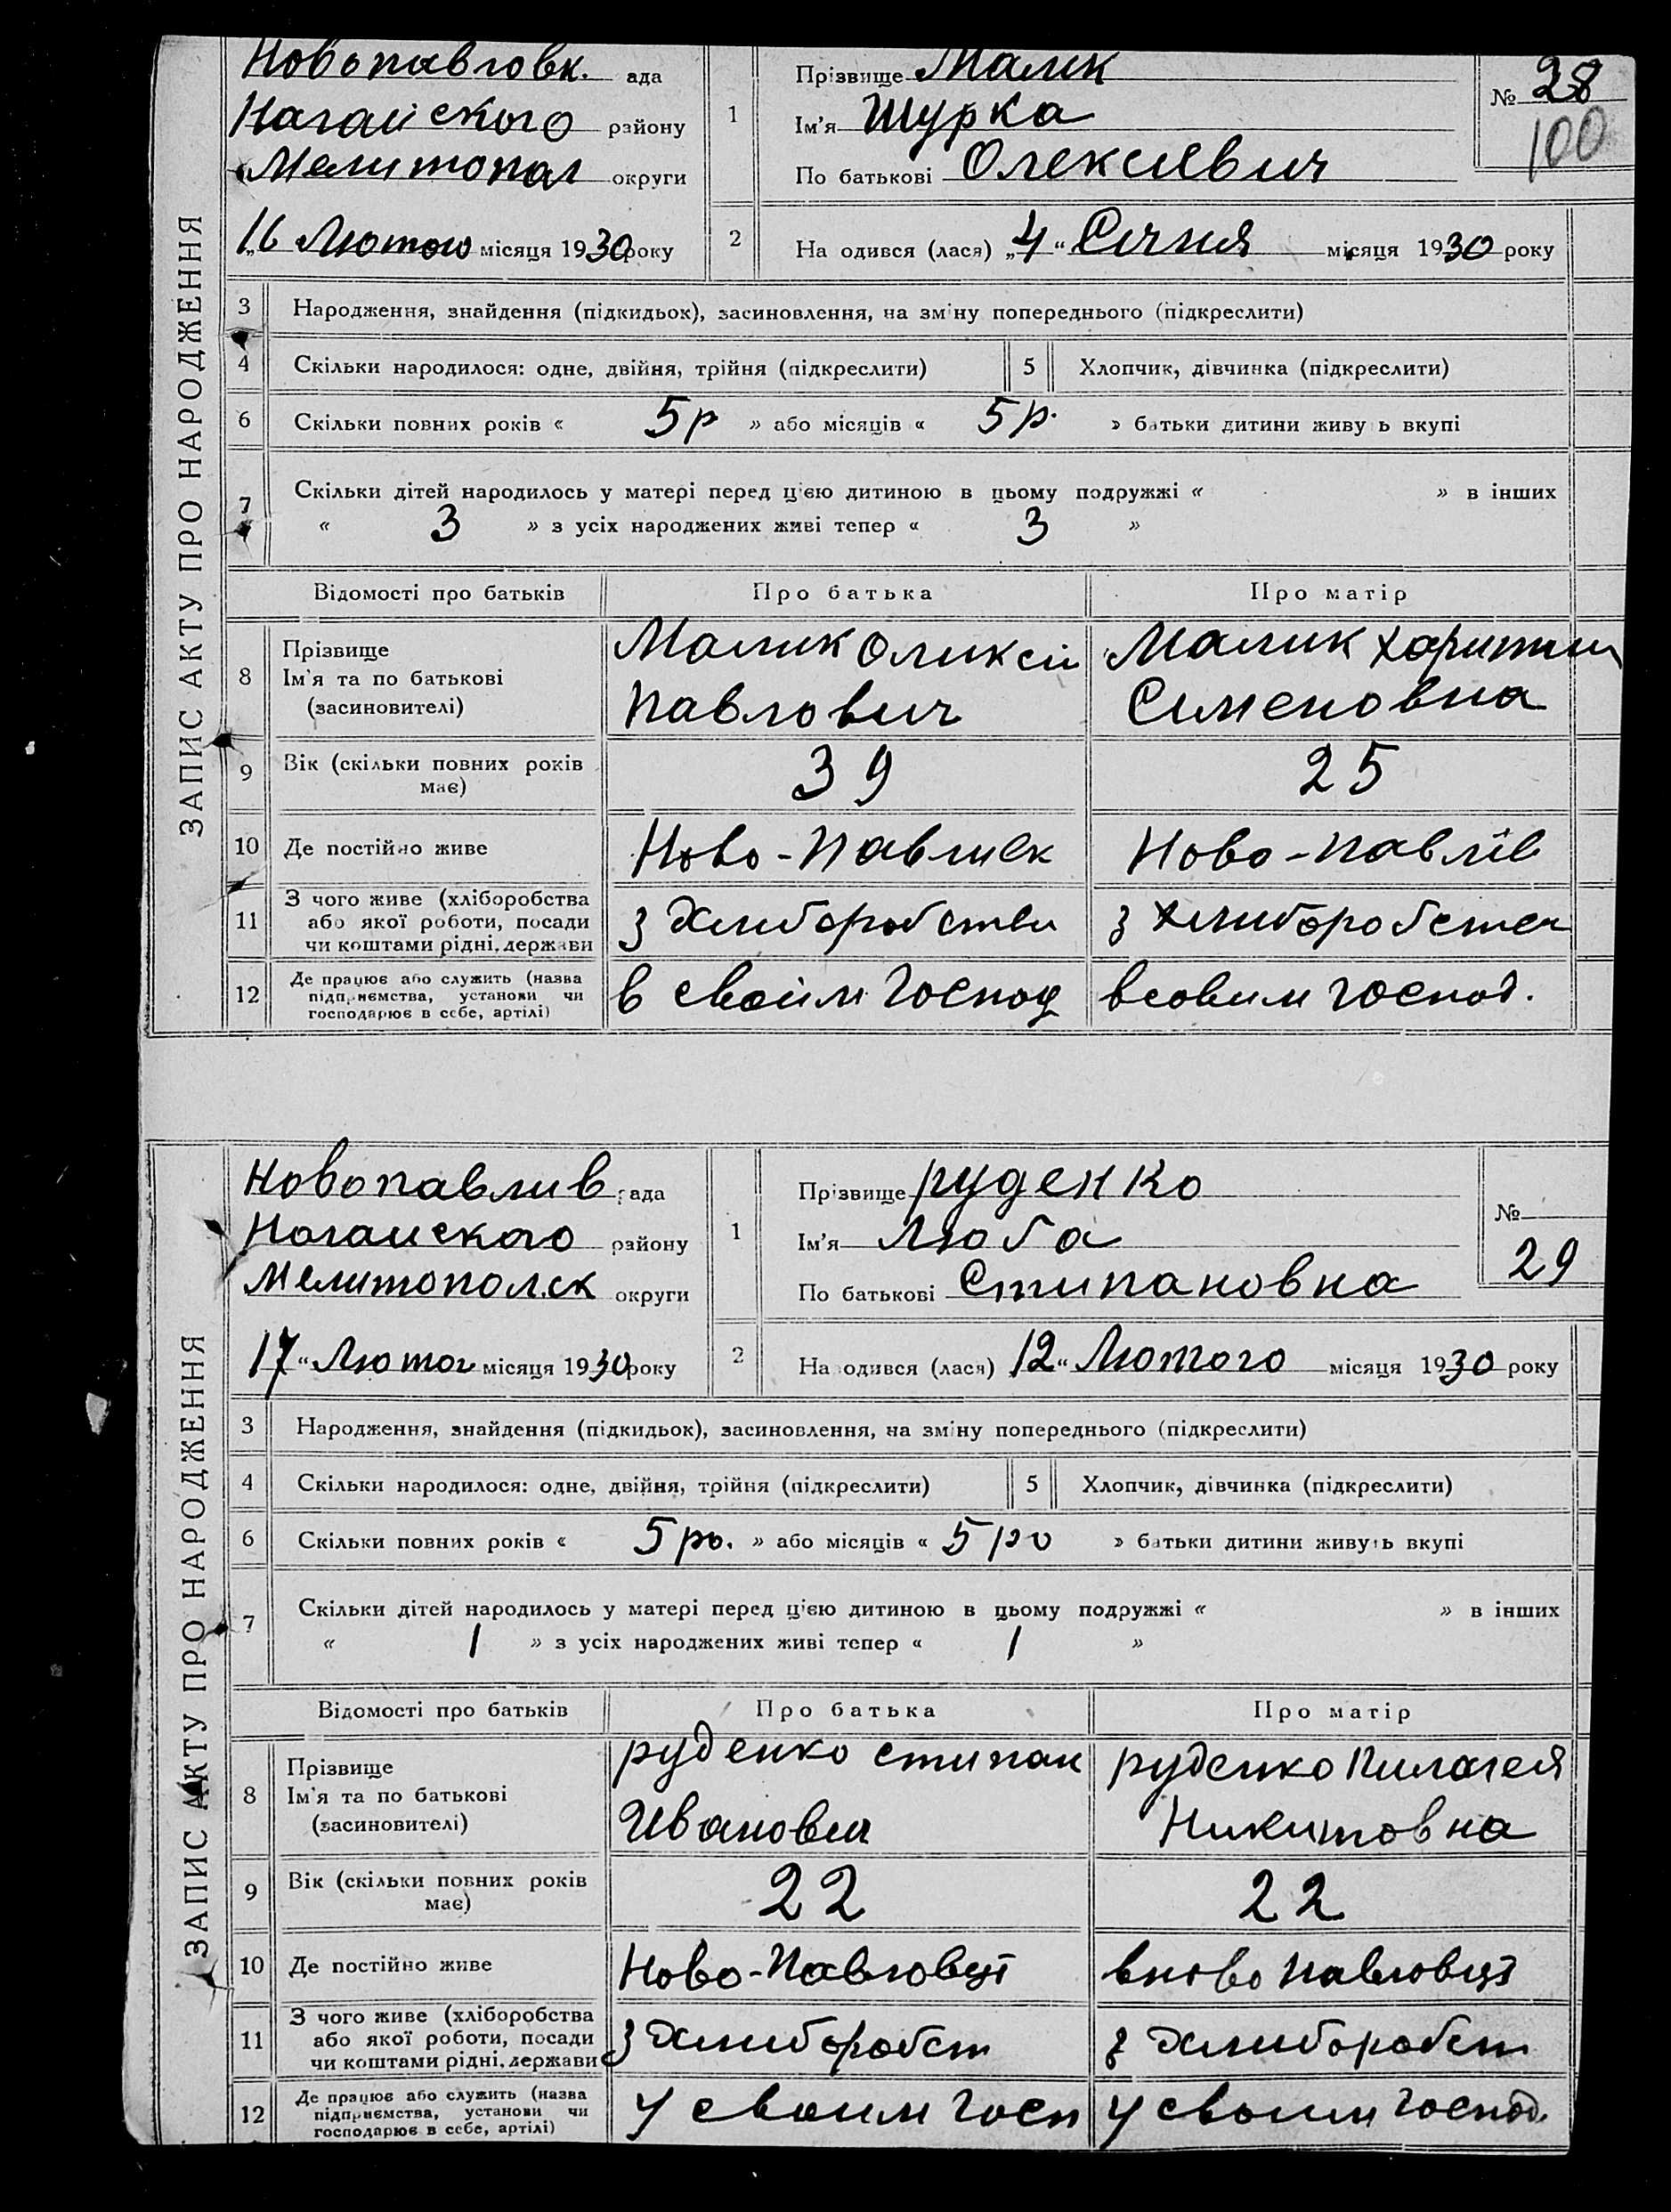 ЗАПИС АКТУ ПРО НАРОДЖЕННЯ
Новопавловк. ада
Нагайского району
Мелитопол округи
„16 Лютого місяця 1930 року
1
Прізвище Малик
Ім'я Шурка
По батькові Олексіевич
№ 28
100
2
На одився (лася) „4“ Січня місяця 1930 року
3 Народження, знайдення (підкидьок), засиновлення, на зм ну попереднього (підкреслити)
4 Скільки народилося: одне, двійня, трійня (підкреслити) 5 Хлопчик, дівчинка (підкреслити)
6 Скільки повних років « 5р » або місяців « 5р. » батьки дитини живу ь вкупі
7 Скільки дітей народилось у матері перед цією дитиною в цьому подружжі « » в інших
« 3 » з усіх народжених живі тепер « 3 »
Відомості про батьків Про батька Про матір
8 Прізвище
Ім'я та по батькові
(засиновителі)
Малик Оликсій
Павлович
Малик Харитин
Сименовна
9 Вік (скільки повних років
має)
39 25
10 Де постійно живе Ново-Павливк Ново-Павлів
11 З чого живе (хліборобства
або якої роботи, посади
чи коштами рідні, держави
з Хлиборобства з Хлиборобства
12 Де працює або служить (назва
підприємства, установи чи
господарює в себе, артілі)
в своїм Господ в совим господ.
ЗАПИС АКТУ ПРО НАРОДЖЕННЯ
Новопавлив рада
Ногайского району
Мелитопол.ск округи
17“ Лютог місяця 1930 року
1
Прізвище руденко
Ім'я Люба
По батькові Стипановна
№
29
2
На одився (лася) 12“ Лютого місяця 1930 року
3 Народження, знайдення (підкидьок), засиновлення, на зміну попереднього (підкреслити)
4 Скільки народилося: одне, двійня, трійня (підкреслити) 5 Хлопчик, дівчинка (підкреслити)
6 Скільки повних років « 5 ро. » або місяців « 5 ро » батьки дитини живуть вкупі
7 Скільки дітей народилось у матері перед цією дитиною в цьому подружжі « » в інших
« 1 » з усіх народжених живі тепер « 1 »
Відомості про батьків Про батька Про матір
8 Прізвище
Ім'я та по батькові
(засиновителі)
руденко стипан
Иванович
руденко Пилагея
Никитовна
9 Вік (скільки повних років
має)
22 22
10 Де постійно живе Ново-Павловці вново Павловці
11 З чого живе (хліборобства
або якої роботи, посади
чи коштами рідні, держави
з Хлиборобст з Хлиборобст
12 Де працює або служить (назва
підприємства, установи чи
господарює в себе, артілі)
у своим Госп у своим господ.